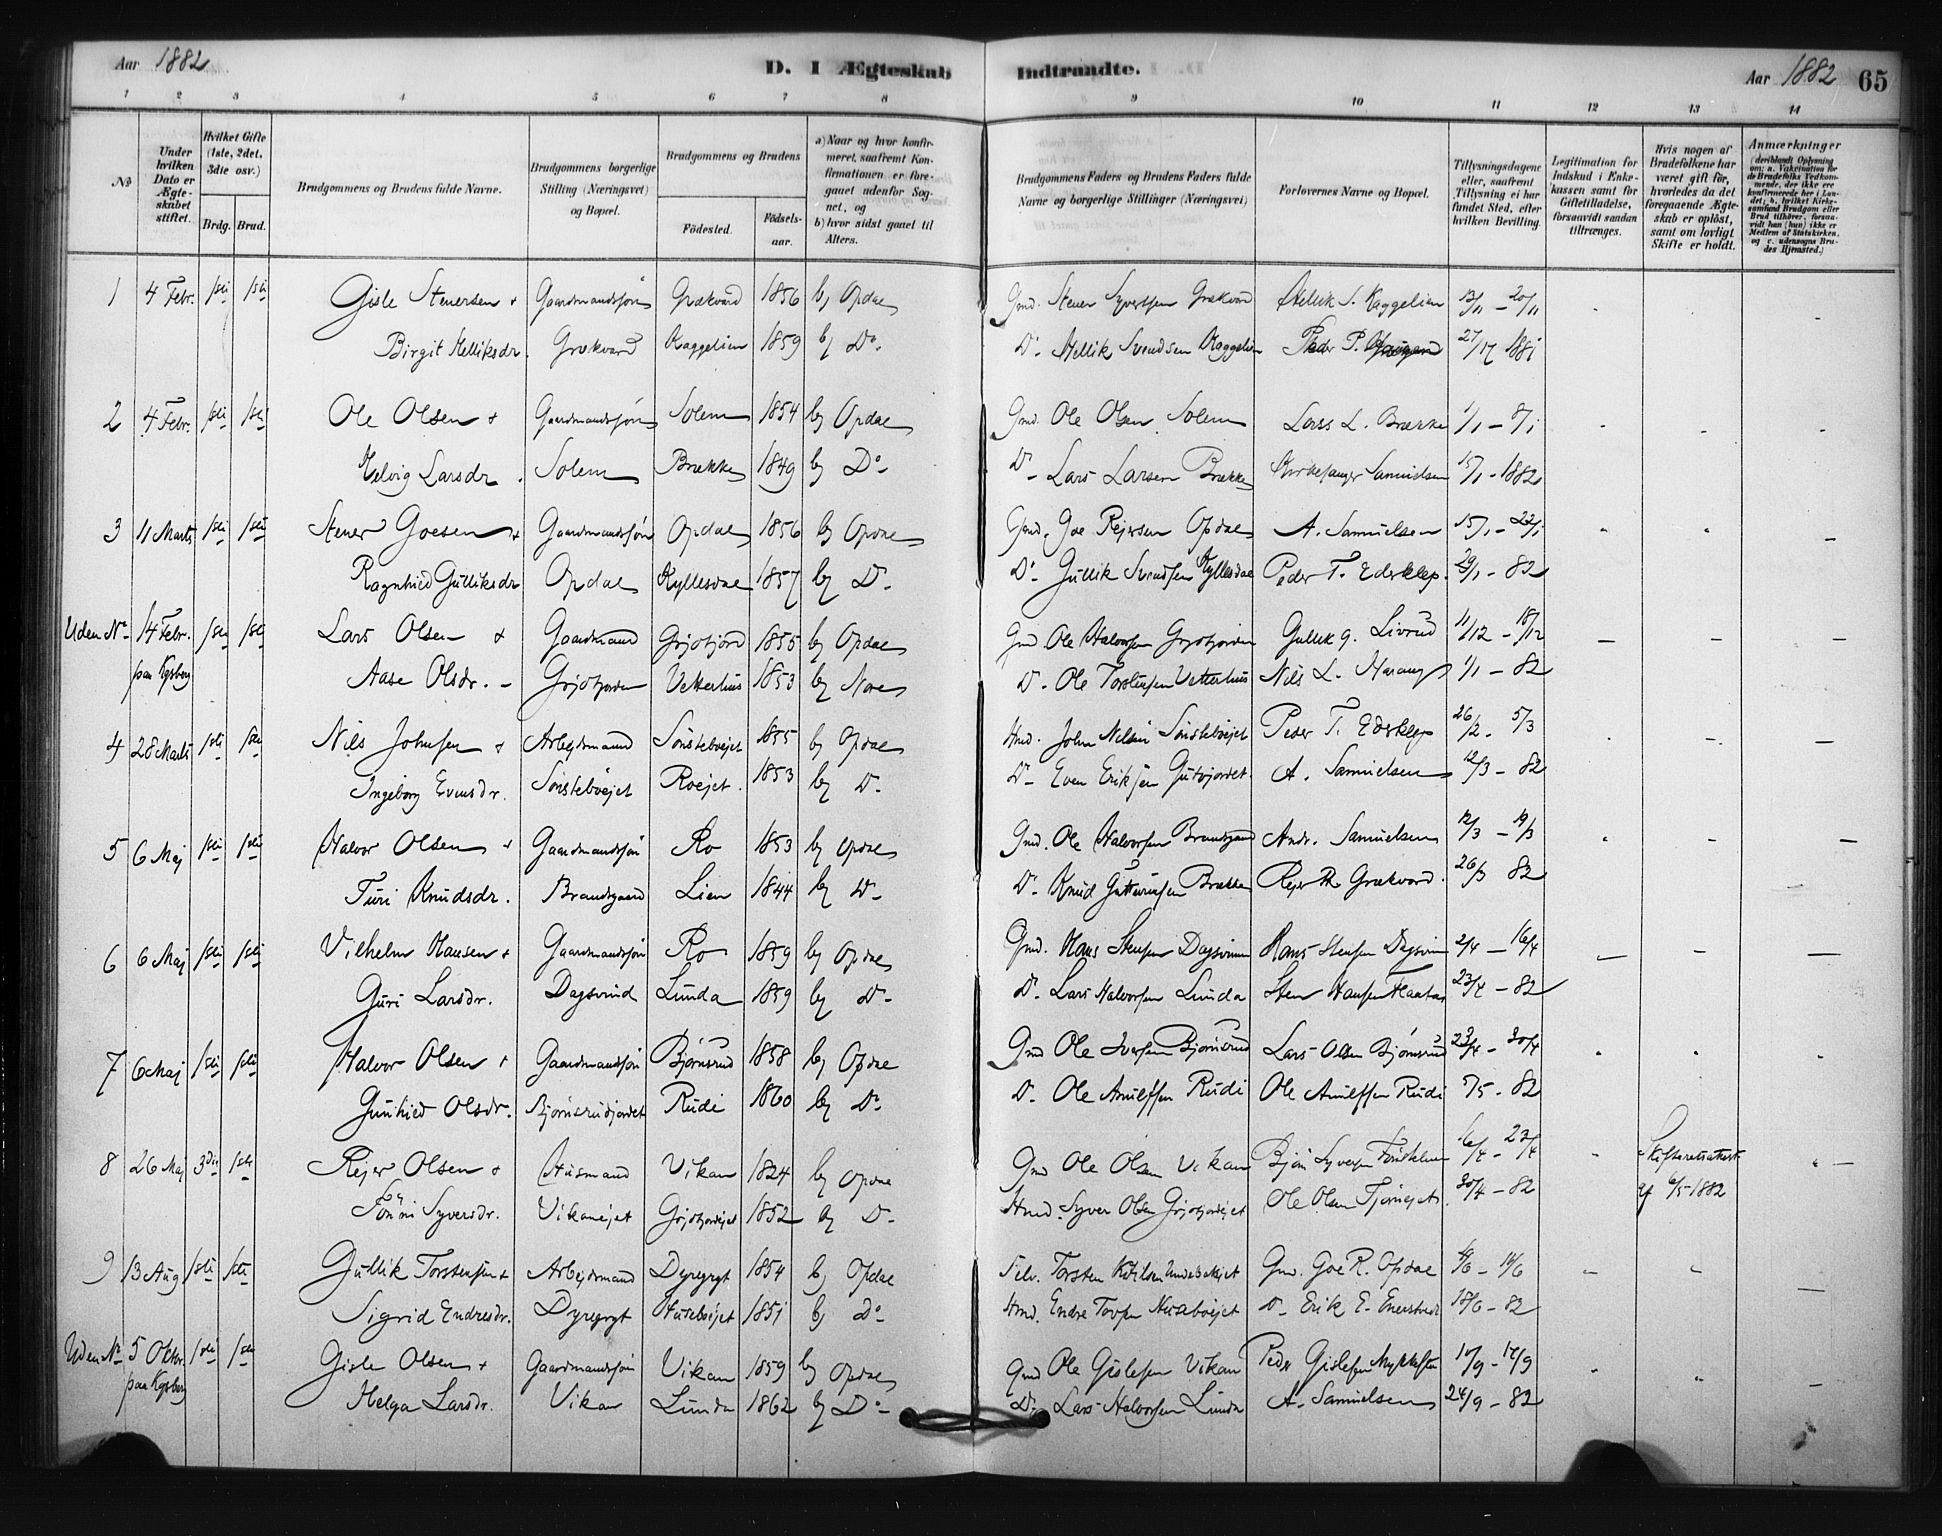 Aar 1882
D. I Ægteskab Indtraadte.
Aar 1882 65
1 2 3 4 5 6 7 8 9 10 11 12 13 14
No
Under hvilken Dato er Ægteskabet stiftet.
Hvilket Gifte (1ste, 2det, 3die osv.)
Brdg. Brud.
Brudgommens og Brudens fulde Navne.
Brudgommens borgerlige Stilling (Næringsvei) og Bopæl.
Brudgommens og Brudens
Fødested.
Fødselsaar.
a) Naar og hvor konfirmeret, saafremt Konfirmationen er foregaaet udenfor Sognet, og
b) hvor sidst gaaet til Alters.
Brudgommens Faders og Brudens Faders fulde Navne og borgerlige Stillinger (Næringsvei)
Forlovernes Navne og Bopæl.
Tillysningsdagene eller, saafremt Tillysning ei har fundet Sted, efter hvilken Bevilling.
Legitimation for Indskud i Enkekassen samt for Giftetilladelse, forsaavidt saadan tiltrænges.
Hvis nogen af Brudefolkene har været gift før, hvorledes da det foregaaende Ægteskab er opløst, samt om lovligt Skifte er holdt.
Anmærkninger
1 4 Febr. 1ste 1ste Gisle Stenersen + Gaardmandssøn Grækvard 1856 b) Opdal Gmd. Stener Syvertsen Grækvard Hellik S. Kaggelien 13/11 – 20/11
Birgit Helliksdr. Grækvard Kaggelien 1859 b) Do. Do. Hellik Svendsen Kaggelien Peder P. 27/11 1881
2 4 Febr. 1ste 1ste Ole Olsen + Gaardmandssøn Solem 1854 b) Opdal Gmd. Ole Olsen Solem Lars L. Brække 1/1 – 8/1
Larsdr. Solem Brække 1849 b) Do. Do. Lars Larsen Brække Kirkesanger Samuelsen 15/1 – 1882
3 11 Marts 1ste 1ste Stener Goesen + Gaardmandssøn Opdal 1856 b) Opdal Gmd. Goe Rejersen Opdal A. Samuelsen 15/1 – 22/1
Ragnhild Gulliksdr. Opdal Kyllesdal 1857 b) Do. Do. Gullik Svendsen Kyllesdal Peder T. Edsklep. 29/1 – 82
Uden No. 14 Febr. 1ste 1ste Lars Olsen + Gaardmand Grjotjord 1855 b) Opdal Gmd. Ole Halvorsen Grjotjorden Gullik G. Livrud 11/12 – 18/12
paa Kgsberg Aase Olsdr. Grjotjorden Vetterhus 1853 b) Nore Do. Ole Torstensen Vetterhus Nils L. 1/1 – 82
4 28 Marts 1ste 1ste Nils Johnsen + Arbejdsmand Sønstebøejet 1855 b) Opdal Hmd. John Nilsen Sønstebøejet Peder T. Edsklep 26/2 – 5/3
Ingeborg Evensdr. Sønstebøejet Roejet 1853 b) Do. Do. Even Eriksen A. Samuelsen 12/3 – 82
5 6 Maj 1ste 1ste Halvor Olsen + Gaardmandssøn Ro 1853 b) Opdal Gmd. Ole Halvorsen Brandsgaard Andr. Samuelsen 12/3 – 19/3
Turi Knudsdr. Brandsgaard Lien 1844 b) Do. Do. Knud Guttormsen Brække Rejer Grækvard 26/3 82
6 6 Maj 1ste 1ste Vilhelm Hansen + Gaardmandssøn Ro 1859 b) Opdal Gmd. Hans Stensen Dagsvinn Hans Stensen Dagsvinn 2/4 – 16/4
Guri Larsdr. Dagsvind Lunda 1859 b) Do. Do. Lars Halvorsen Lunda Sten Hansen 23/4 – 82
7 6 Maj 1ste 1ste Halvor Olsen + Gaardmandssøn Bjørnsrud 1858 b) Opdal Gmd. Ole Iversen Bjørnsrud Lars Olsen Bjørnsrud 23/4 – 30/4
Gunhild Olsdr. Bjørnsrudjordet Rudi 1860 b) Do. Do. Ole Arnulfsen Rudi Ole Arnulfsen Rudi 7/5 – 82
8 26 Maj 3die 1ste Rejer Olsen + Husmand Vikan 1824 b) Opdal Gmd. Ole Olsen Vikan Bjørn Syversen 16/4 – 23/4 Skifteretsattest
Tønni Syversdr. Vikanejet Grjotjordejet 1852 b) Do. Hmd. Syver Olsen Grjotjordejet Ole Olsen 30/4 – 82 af 6/5 1882
9 13 Aug 1ste 1ste Gullik Torstensen + Arbejdsmand Dyregrgt 1854 b) Opdal Selv. Torsten Ketilsen Gmd. Goe R. Opdal 4/6 – 11/6
Sigrid Endresdr. Dyregrgt Husebøejet 1851 b) Do. Hmd. Endre Do. Erik E. 18/6 – 82
Uden No. 5 Oktbr. 1ste 1ste Gisle Olsen + Gaardmandssøn Vikan 1859 b) Opdal Gmd. Ole Gislesen Vikan Peder Gislesen 10/9 – 17/9
paa Kgsberg Helga Larsdr. Vikan Lunda 1862 b) Do. Do. Lars Halvorsen Lunda A. Samuelsen 24/9 – 82